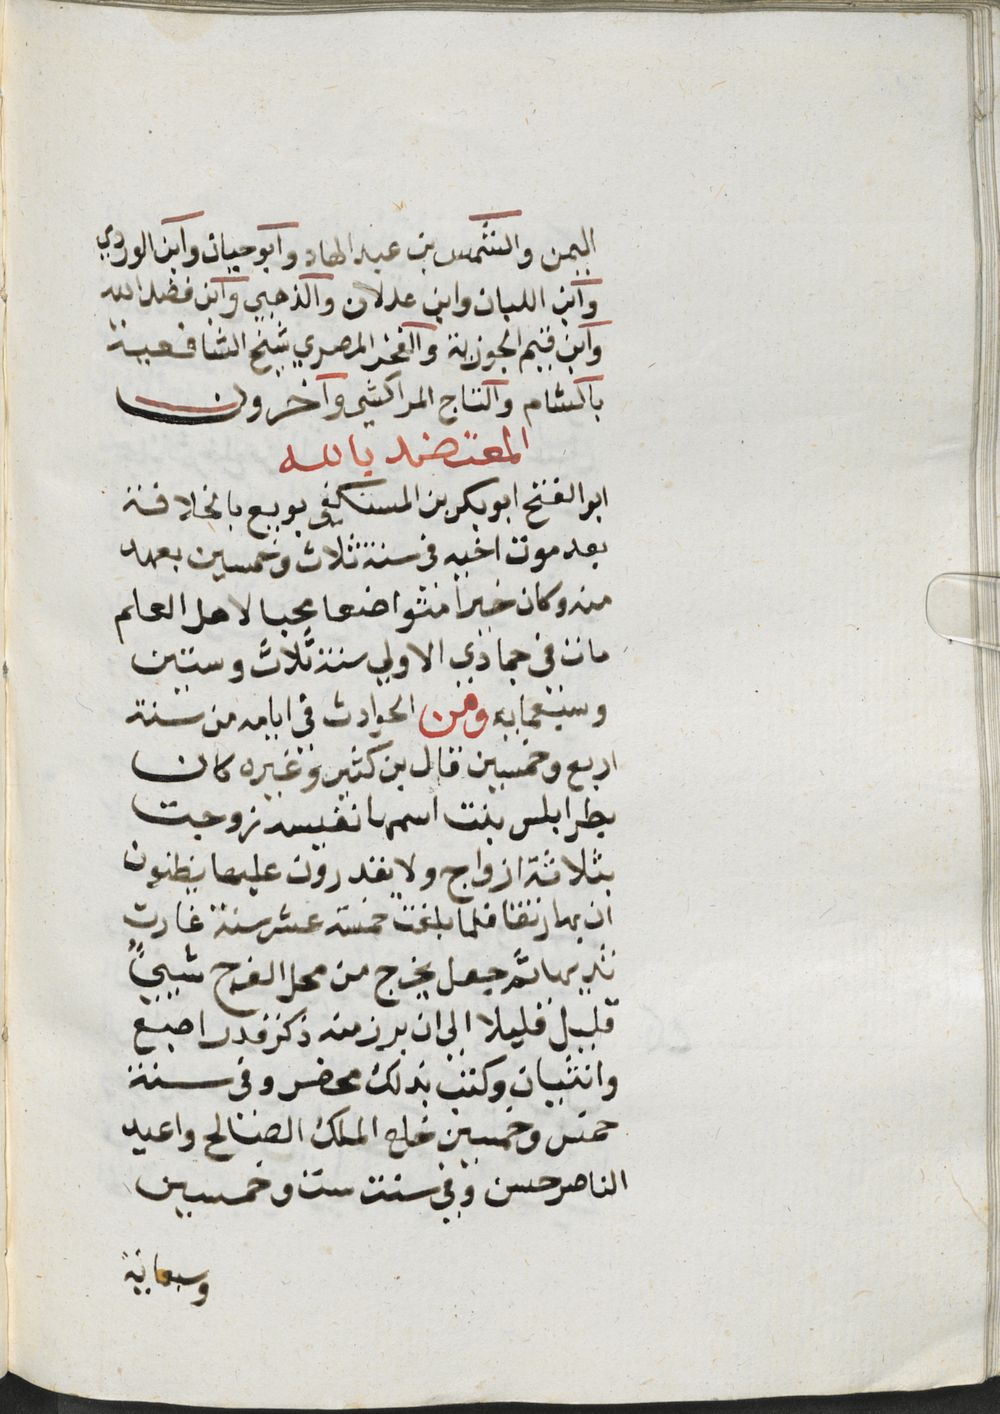 اليمن والشمس بن عبد الهاد وابو حيان وابن الوردي
وابن اللبان وابن عدلان والذهبي وابن فضل الله
وابن قيم الجوزية والفخر المصري شيخ الشافعية
بالشام والتاج المراكشي وآخرون
المعتضد بالله
ابو الفتح ابو بكر بن المستكفي بويع بالخلافة
بعد موت اخيه في سنة ثلاث وخمسين بعهد
منه وكان خيرا متواضعا محبا لاهل العلم
مات في جماذي الاولي سنة ثلاث وستين
وسبعمايه ومن الحوادث في ايامه من سنة
اربع وخمسين قال بن كثير وغيره كان
بطرابلس بنت اسمها نفيسة زوجت
بثلاثة ازواج ولا يقدرون عليها يظنون
ان بها رتقا فلما بلغت خمسة عشر سنة غارت
ثديها ثم جعل يخرج من محل الفرج شيئ
قليل قليلا الى ان برز منه ذكر قدر اصبع
وانثيان وكتب بذلك محضر وفي سنة
خمس وخمسين خلع الملك الصالح واعيد
الناصر حسن وفي سنت ست وخمسين
وسبعماية